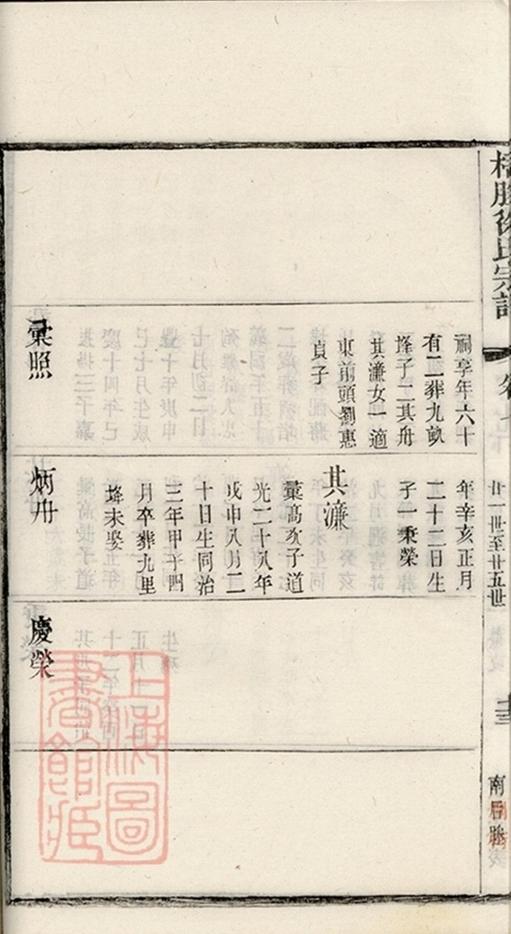 徐氏宗譜
廿一世至廿五世
祠享年六十
有二葬九畝
塝子二其舟
其濂女一適
東前頭劉惠
貞子
彙照
年辛亥正月
二十三日生
子一秉榮
其濂
彙高次子道
光二十八年
戊申八月二
十日生同治
三年甲子四
月卒葬九里
塝未娶
炳舟
慶榮
上海圖
書館藏